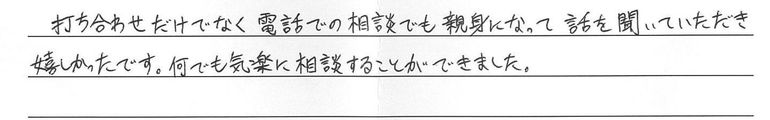 打ち合わせだけでなく電話での相談でも親身になって話を聞いていただき
嬉しかったです。何でも気楽に相談することができました。